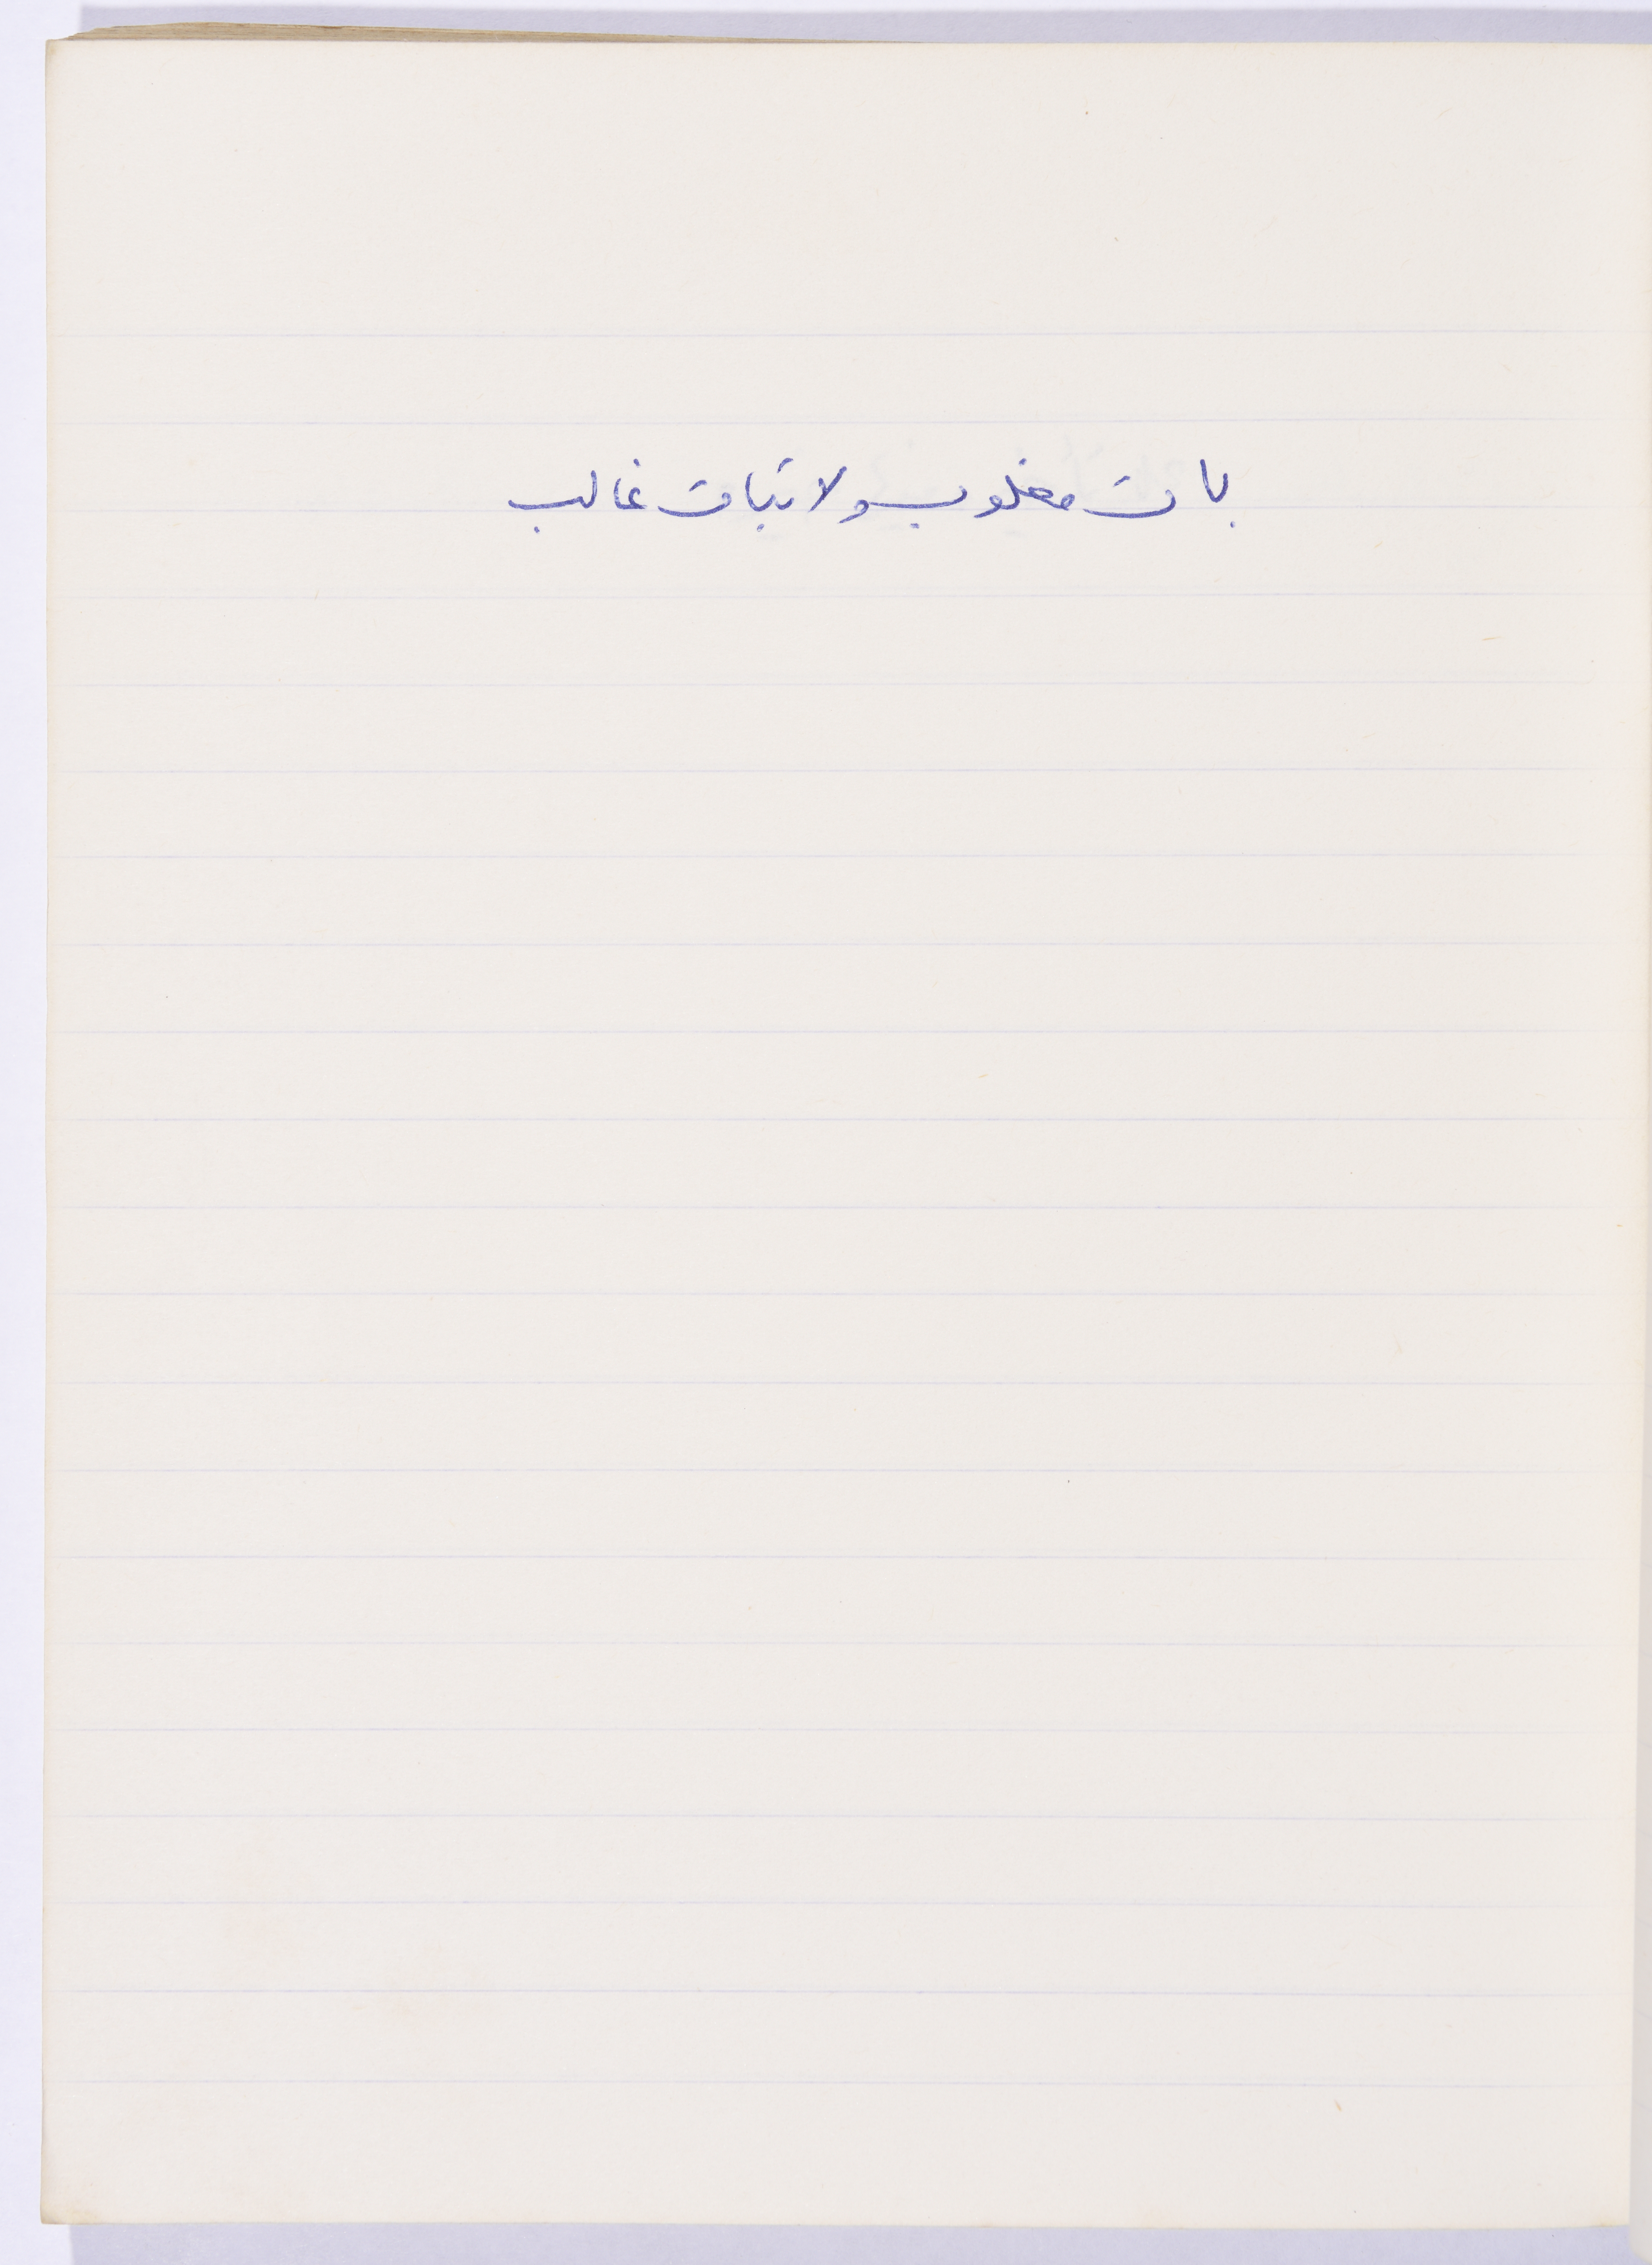 بات مغلوب ولا تبات غالب